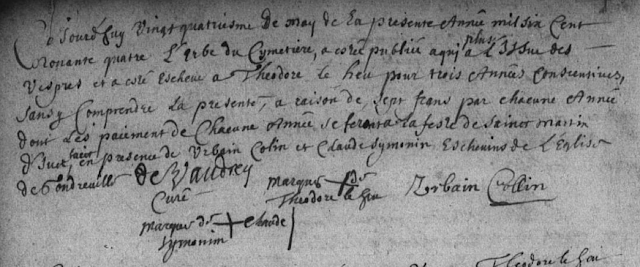 Ce Jourd'huy Vingt quatriesme de may de La presente Année mil six Cent
Nonante quatre L'erbe du Cymetière, a esté publiée a qui plus a L'Issue des
Vespres et a esté Escheue a Theodore le heu pour trois Années Consecutives,
sans y Comprendre la presente, a raison de sept frans par chacune Année
dont Les paiement de Chacune Année se feront a la feste de Sainct martin
d'huit faict en presence de Urbain Colin et Claude Symonin Eschevins de L'Eglise
de Gondreville
de Vaudrey
Curé
marque de
Theodore le heu
Urbain Collin
marque de Claude
Symonin
Theodore le